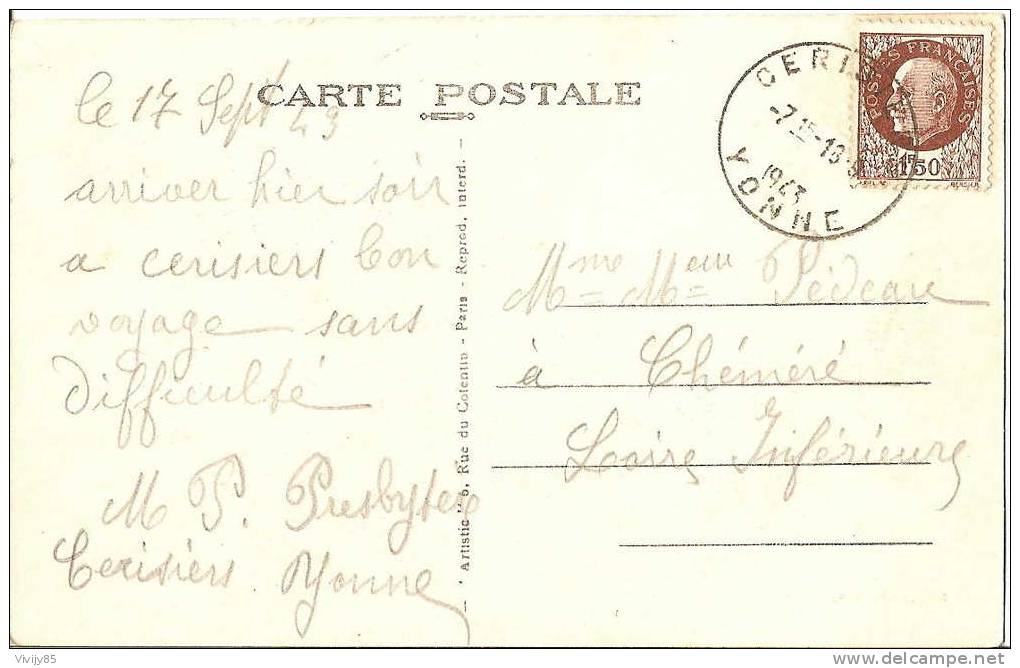 CARTE POSTALE
le 17 Sept 43
arriver hier soir
a cerisiers bon
voyage sans
difficulté
M P. Presbytere
Cerisiers Yonne
Rue du Cotentin - Paris - Reprod. Interd. -
CERI
-7 15-18-9
1943
YONNE
POSTES FRANÇAISES
1F50
BERSIER
Mme Meur
à Chéméré
Loire Inférieure
Vivijy85
delcampe.net